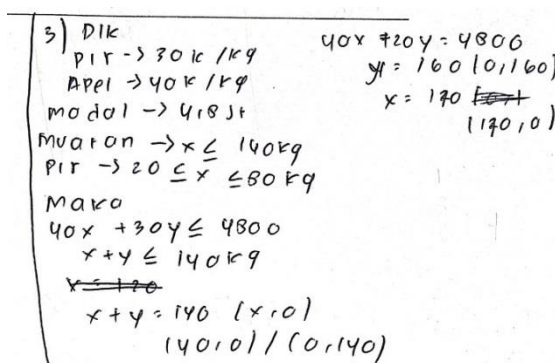 3) DIK
PIr -> 30k /kg
Apel -> 40k /kg
modal -> 4,8 Jt
muatan -> x ≤ 140kg
PIr -> 20 ≤ x ≤ 80kg
Maka
40x + 30y ≤ 4800
x+y ≤ 140kg
x = 120
x+y = 140 (x,0)
(40,0) / (0,140)
40x +20y = 4800
y = 160 (0,160)
x = 120
(120,0)